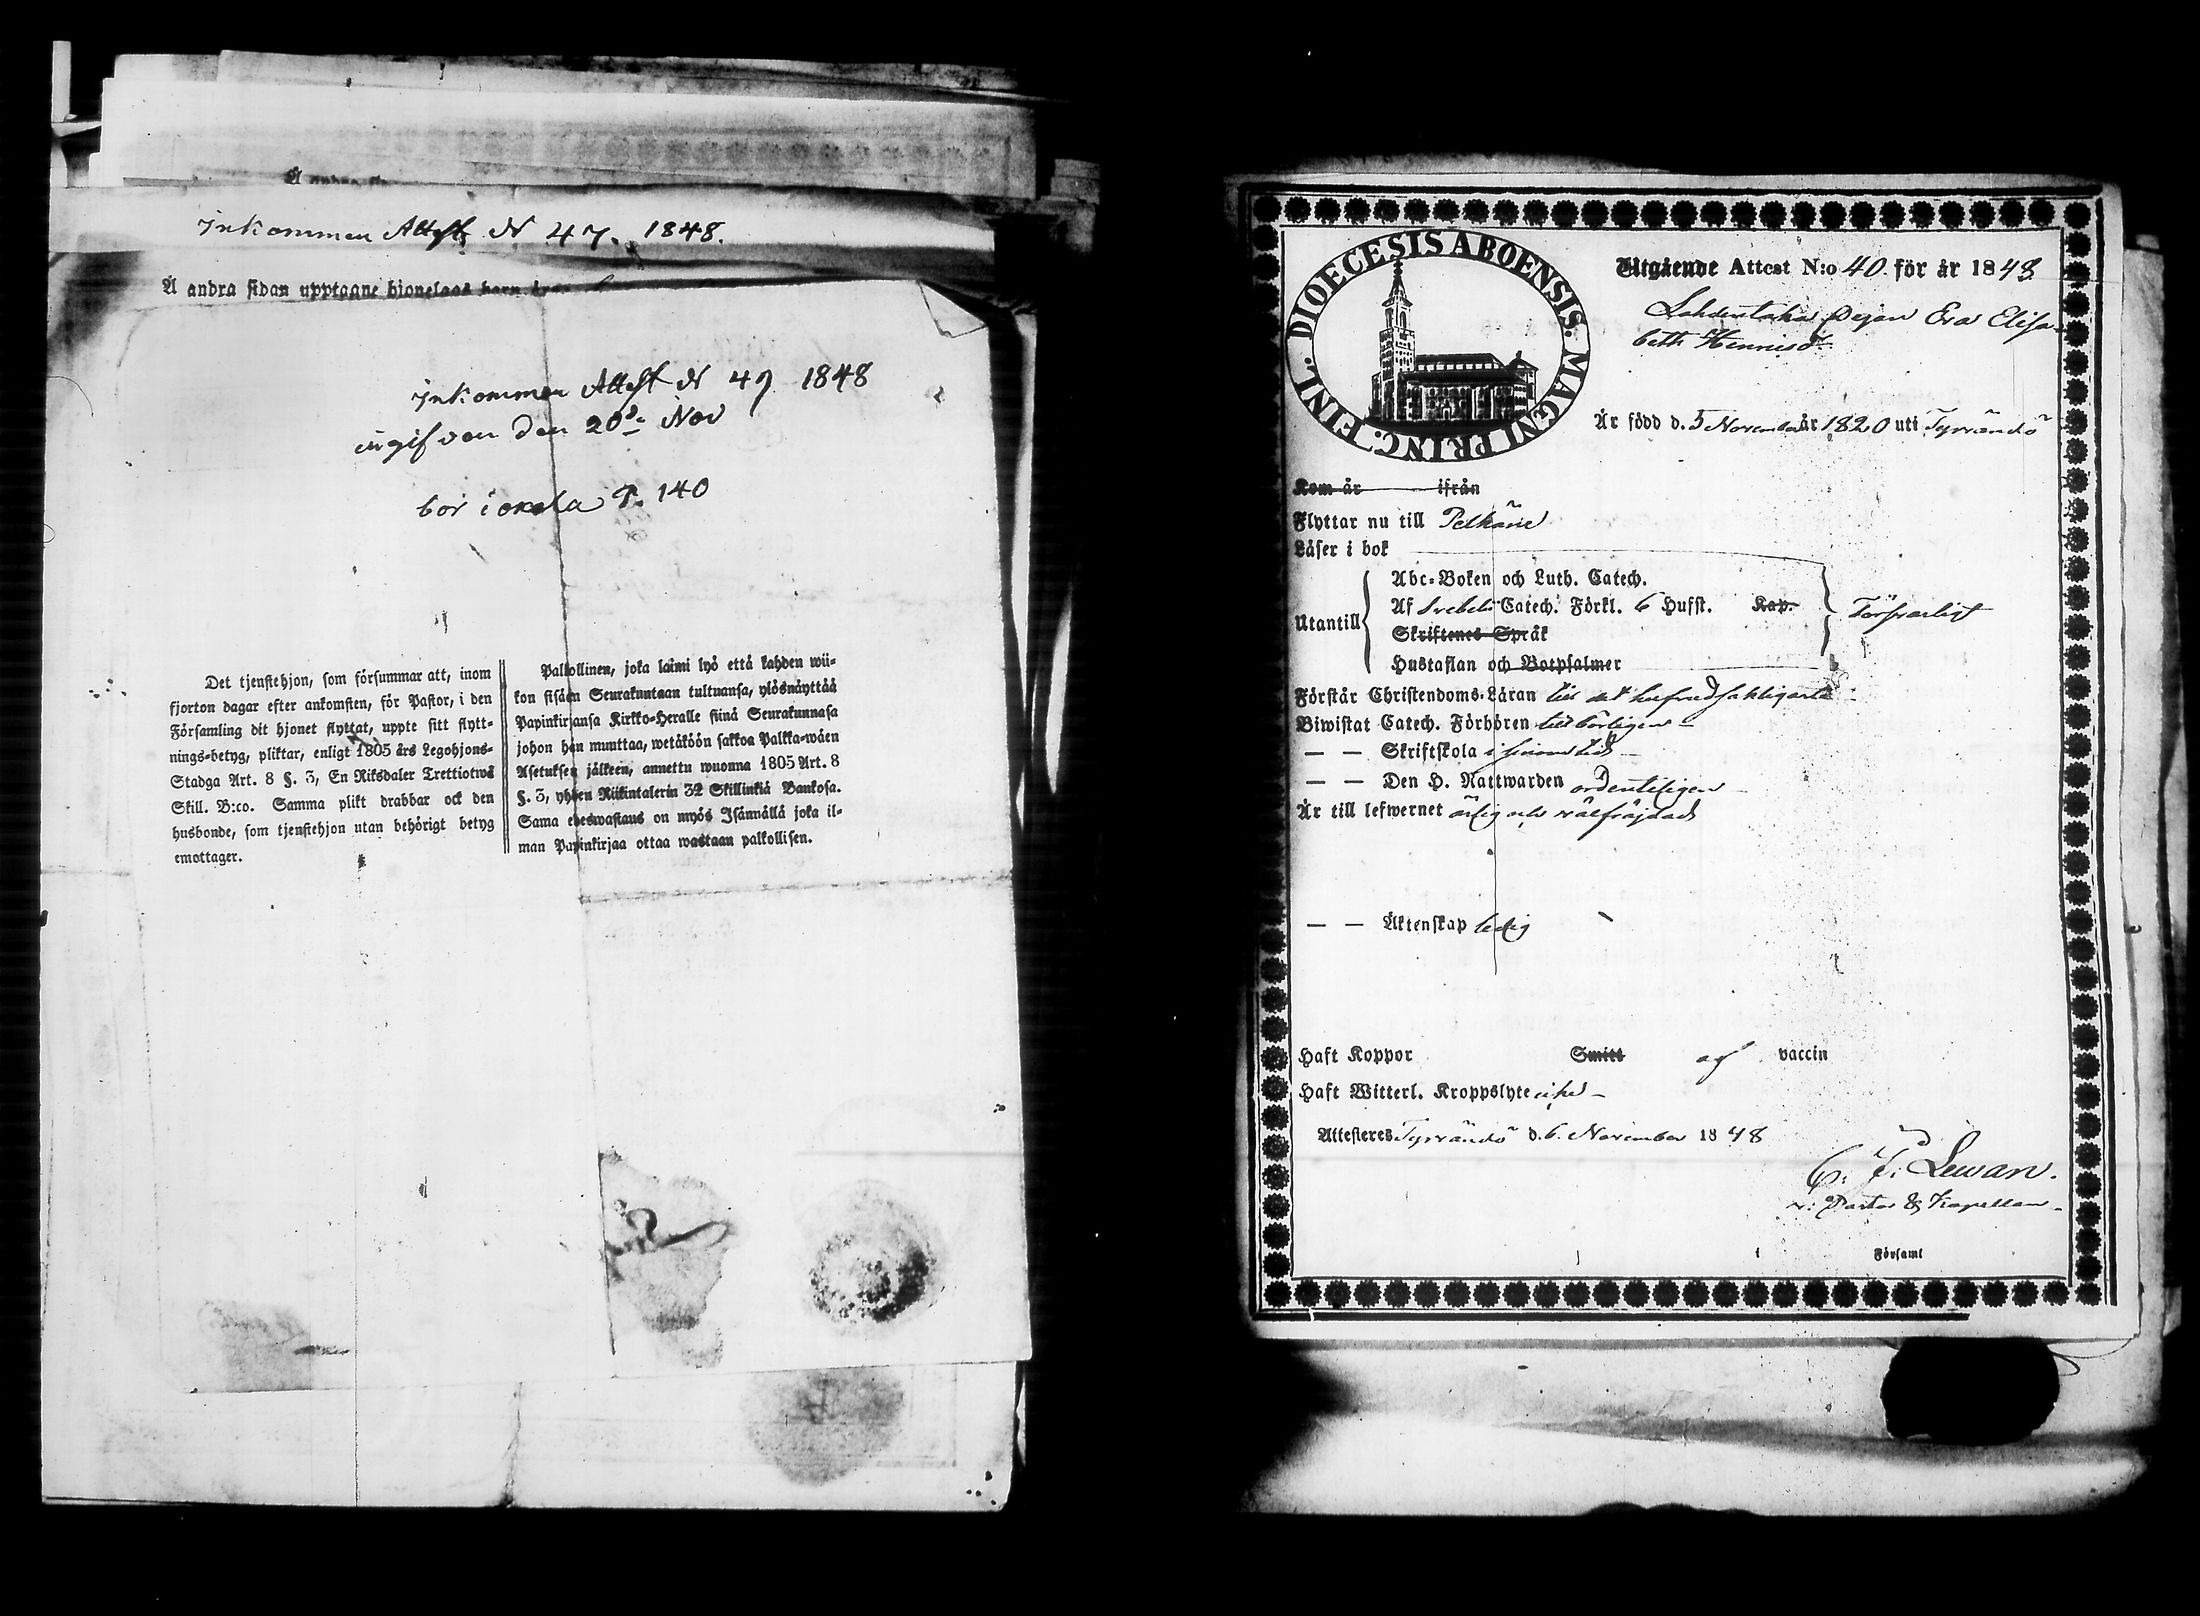 Inkommen Attest N 47. 1848.
Å andra sidan upptagne hjonelags barn äro
inkommen Attest N 49 1848
ingifven den 20de Nov
bor i onkola P. 140
Det tjenstehjon, som försummar att, inom
fjorton dagar efter ankomsten, för Pastor, i den
Församling dit hjonet flyttat, uppte sitt flytt-
nings-betyg, pliktar, enligt 1805 års Legohjons-
Stadga Art. 8 §. 3, En Riksdaler Trettiotwå
Skill. B:co. Samma plikt drabbar ock den
husbonde, som tjenstehjon utan behörigt betyg
emottager.
Palkollinen, joka laimi lyö että kahden wii-
kon sisään Seurakuntaan tultuansa, ylösnäyttää
Papinkirjansa Kirkko-Heralle siinä Seurakunnasa
johon hän muuttaa, wetäköön sakkoa Palkka-wäen
Asetuksen jälkeen, annettu wuonna 1805 Art. 8
§. 3, yhden Riikintalerin 32 Skillinkiä Bankosa.
Sama edeswastaus on myös Isännällä joka il-
man Papinkirjaa ottaa wastaan palkollisen.
DIOECESIS ABOENSIS. MAGNI PRINC. FINL.
Utgående Attest N:o 40. för år 1848
Lahdentaka Pigan Eva Elisa-
beth Henricsdr
Är född d. 5 November år 1820 uti Tyrvändö
Kom år ifrån
Flyttar nu till Pelkäne
Läser i bok
Abc-Boken och Luth. Catech.
Utantill Af Svebeli Catech. Förkl. 6 Hufst. Kap. Försvarligt
Skriftenes Språk
Hustaflan och Botpsalmer
Förstår Christendoms-Läran till det hufvudsakligaste
Biwistat Catech. Förhören tillbörligen
— — Skriftskola i sinom tid
— — Den H. Nattwarden ordenteligen
Är till lefwernet ärlig och välfräjdad
— — Äktenskap ledig
Haft Koppor Smitt af vaccin
Haft Witterl. Kroppslyte icke
Attesteres Tyrvändö d. 6. November 1848
C. J. Lewan.
v: Pastor & Kapellan.
i Församl